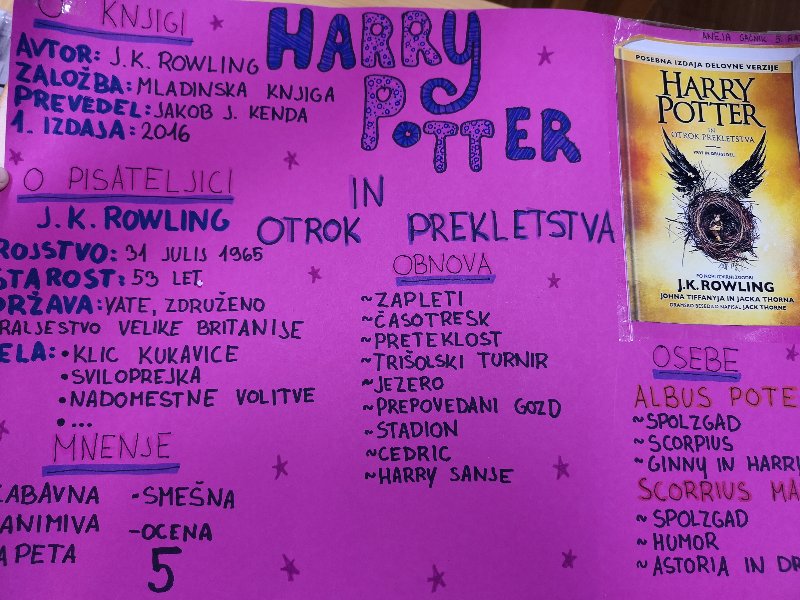 O KNJIGI
AVTOR: J.K. ROWLING
ZALOŽBA: MLADINSKA KNJIGA
PREVEDEL: JAKOB J. KENDA
1. IZDAJA: 2016
HARRY
POTTER
IN
OTROK PREKLETSTVA
O PISATELJICI
J.K. ROWLING
ROJSTVO: 31 JULIJ 1965
STAROST: 53 LET
DRŽAVA: YATE, ZDRUŽENO
KRALJESTVO VELIKE BRITANIJE
DELA: • KLIC KUKAVICE
• SVILOPREJKA
• NADOMESTNE VOLITVE
• ...
MNENJE
ZABAVNA
ZANIMIVA
NAPETA
- SMEŠNA
- OCENA
5
OBNOVA
~ ZAPLETI
~ ČASOTRESK
~ PRETEKLOST
~ TRIŠOLSKI TURNIR
~ JEZERO
~ PREPOVEDANI GOZD
~ STADION
~ CEDRIC
~ HARRY SANJE
ANEJA GAČNIK 5. RA
POSEBNA IZDAJA DELOVNE VERZIJE
HARRY
POTTER
IN
OTROK PREKLETSTVA
PRVI IN DRUGI DEL
PO NOVI IZVIRNI ZGODBI
J.K. ROWLING
JOHNA TIFFANYJA IN JACKA THORNA
DRAMSKO BESEDILO NAPISAL JACK THORNE
OSEBE
ALBUS POTE
~ SPOLZGAD
~ SCORPIUS
~ GINNY IN HARRY
SCORRIUS MA
~ SPOLZGAD
~ HUMOR
~ ASTORIA IN DR